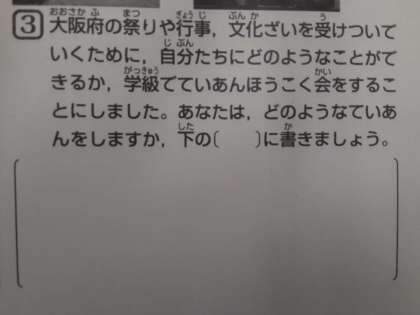 3 大阪府の祭りや行事，文化ざいを受けついで
いくために，自分たちにどのようなことがで
きるか，学級でていあんほうこく会をするこ
とにしました。あなたは，どのようなていあ
んをしますか，下の(　　)に書きましょう。